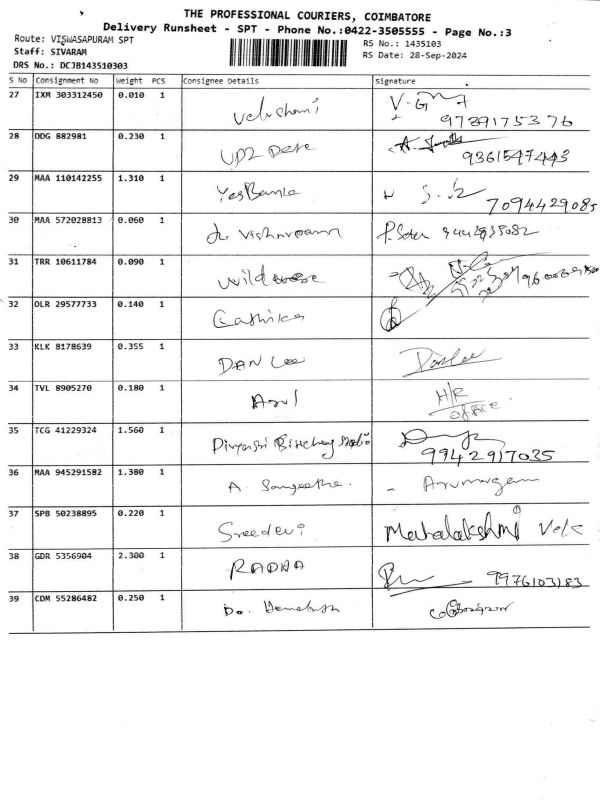 THE PROFESSIONAL COURIERS, COIMBATORE
Delivery Runsheet - SPT - Phone No.:0422-3505555 - Page No.:3
Route: VISWASAPURAM SPT
RS No.: 1435103
Staff: SIVARAM
RS Date: 28-Sep-2024
DRS No.: DCJB143510303
S No Consignment No Weight PCS Consignee Details Signature
27 IXM 303312450 0.010 1
9789175376
28 DDG 882981 0.230 1
9361547443
29 MAA 110142255 1.310 1 Yes Bank
7094429085
30 MAA 572028813 0.060 1
31 TRR 10611784 0.090 1
32 OLR 29577733 0.140 1
33 KLK 8178639 0.355 1 DAN Lee Danlee
34 TVL 8905270 0.180 1 Arul H/R
office
35 TCG 41229324 1.560 1
9942917035
36 MAA 945291582 1.380 1 A. Sangeetha. - Arumugam
37 SPB 50238895 0.220 1 Sreedevi Mahalakshmi
38 GDR 5356904 2.300 1 RADHA
9976103183
39 CDM 55286482 0.250 1